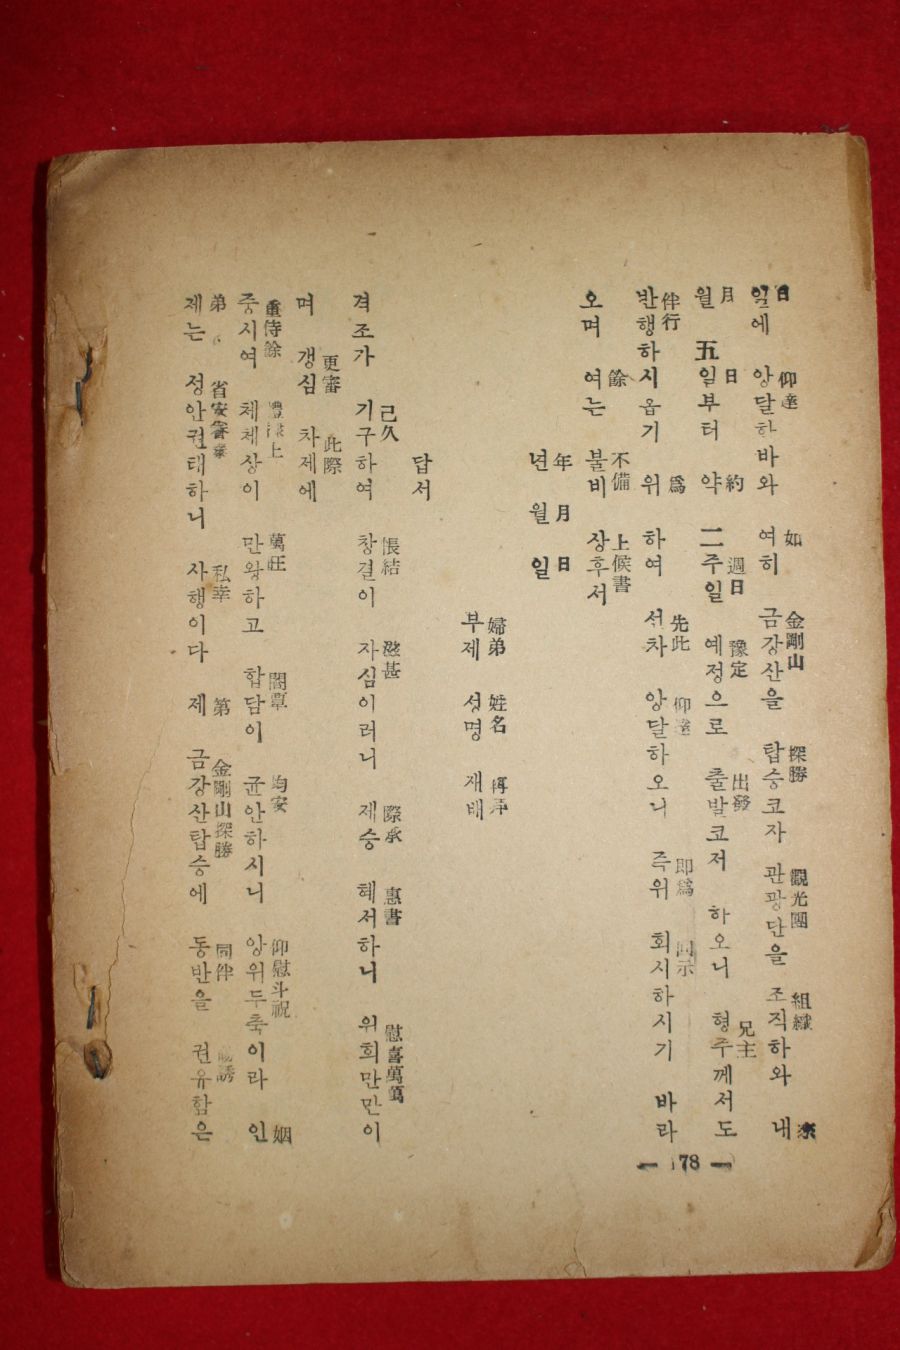 日 仰達 如 金剛山 探勝 觀光團 組織 來
일에 앙달한바와 여히 금강산을 탑승코자 관광단을 조직하와 내
月 日 約 週日 豫定 出發 兄主
월 五일부터 약 二주일 예정으로 출발코저 하오니 형주께서도
伴行 爲 先此 仰達 即爲 回示
반행하시옵기 위하여 선차 앙달하오니 즉위 회시하시기 바라
餘 不備 上候書
오며 여는 불비 상후서
年 月 日
년 월 일
婦弟 姓名 再拜
부제 성명 재배
답서
己久 悵結 滋甚 際承 惠書 慰喜萬萬
겨조가 기구하여 창결이 자심이러니 제승 혜서하니 위희만만이
更審 此際
며 갱심 차제에
重侍餘 上 萬旺 閤覃 均安 仰慰斗祝 姻
중시여 체체상이 만왕하고 합담이 균안하시니 앙위두축이라 인
弟 省安眷 私幸 第 金剛山探勝 同伴 誘
제는 정안권태하니 사행이다 제 금강산탑승에 동반을 권유함은
— 78 —